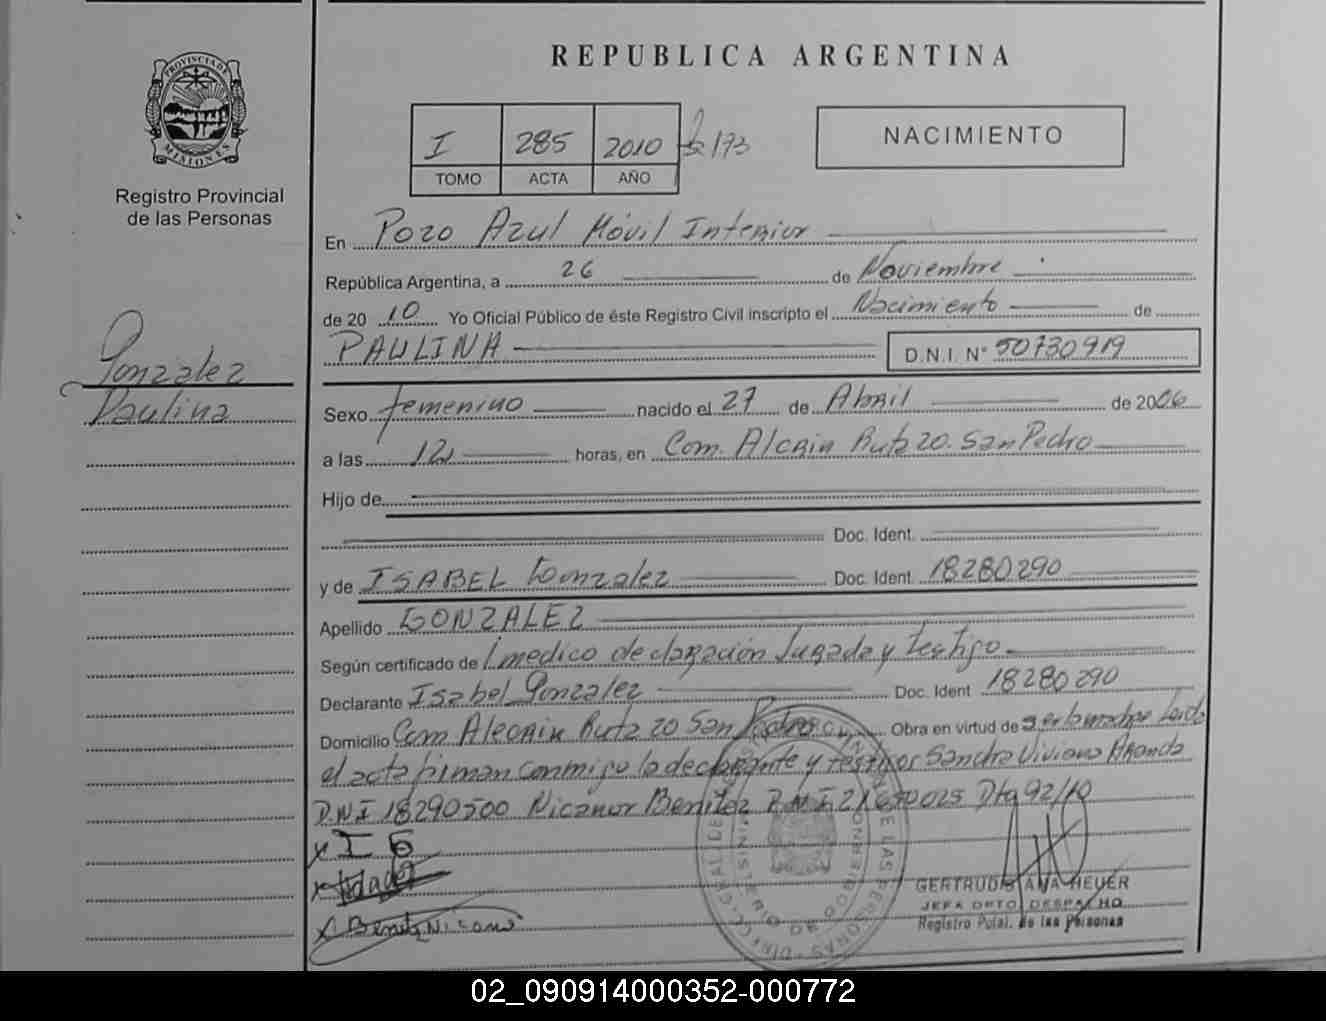 REPUBLICA ARGENTINA
PROVINCIA DE MISIONES
Registro Provincial
de las Personas
I 285 2010 173
TOMO ACTA AÑO
NACIMIENTO
En Pozo Azul Móvil Interior
República Argentina, a 26 de Noviembre
de 2010 Yo Oficial Público de éste Registro Civil inscripto el Nacimiento de
PAULINA D.N.I. N° 50730919
Gonzalez
Paulina
Sexo femenino nacido el 27 de Abril de 2006
a las 12 horas, en Com. Alecrin Ruta 20. San Pedro
Hijo de
Doc. Ident.
y de ISABEL Gonzalez Doc. Ident. 18280290
Apellido GONZALEZ
Según certificado de medico declaración Jurada y testigo
Declarante Isabel Gonzalez Doc. Ident 18280290
Domicilio Com Alecrin Ruta 20 San Pedro Obra en virtud de ser la madre Leida
el acta firman conmigo la declarante y testigos Sandra Viviana Aranda
D.N.I 18290500 Nicanor Benitez D.N.I 21670025 Dto 92/10
x I G
x
x Benitez Nicano
GERTRUDIS ANA HEUER
JEFA DPTO DESPACHO
Registro Pcial. de las Personas
02_090914000352-000772